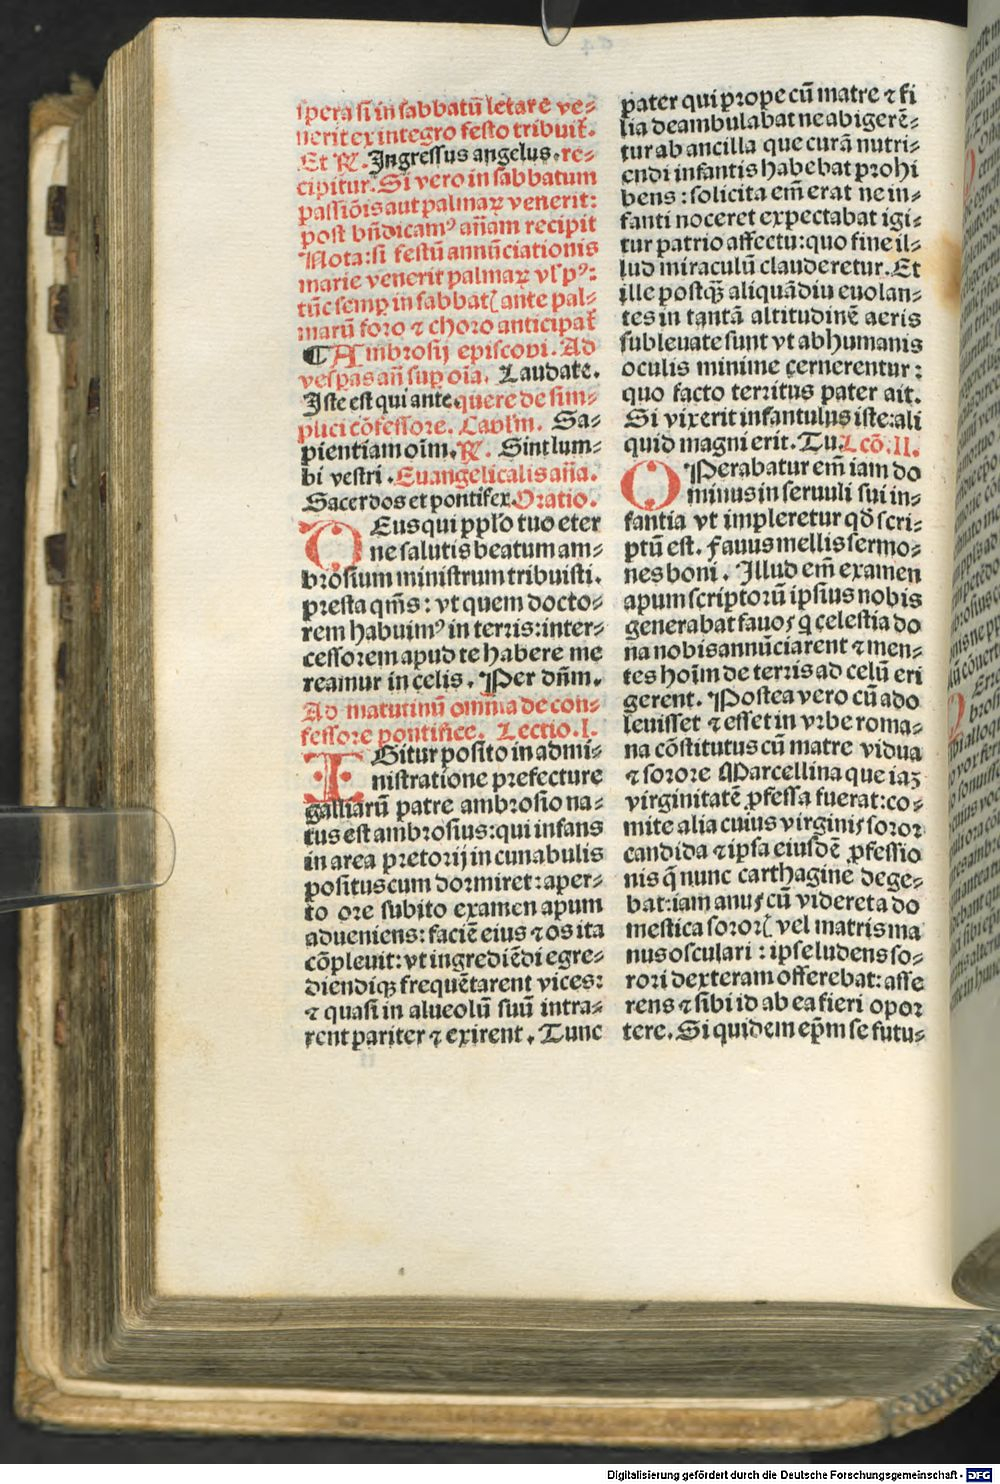 spera si in sabbatū letare ve⸗
nerit ex integro festo tribuit̄.
Et ꝶ. Ingressus angelus. re⸗
cipitur. Si vero in sabbatum
passiōis aut palmaꝝ venerit:
post bn̄dicamꝰ an̄am recipit
Nota: si festū annūciationis
marie venerit palmaꝝ vl̓ pꝰ:
tūc semꝑ in sabbatꝭ ante pal⸗
marū foro ⁊ choro anticipat̄
¶ Ambrosij episcopi. Ad
vesꝑas an̄ suꝑ oīa. Laudate.
Iste est qui ante. quere de sim⸗
plici cōfessore. Capl̓m. Sa⸗
pientiam oīm. ꝶ. Sint lum⸗
bi vestri. Euangelicalis an̄a.
Sacerdos et pontifex. Oratio.
DEus qui ppl̓o tuo eter
ne salutis beatum am⸗
brosium ministrum tribuisti.
presta qm̄s: vt quem docto⸗
rem habuimꝰ in terris: inter⸗
cessorem apud te habere me
reamur in celis. Per dn̄m.
Ad matutinū omnia de con⸗
fessore pontifice. Lectio. I.
IGitur posito in admi⸗
nistratione prefecture
galliarū patre ambrosio na⸗
tus est ambrosius: qui infans
in area pretorij in cunabulis
positus cum dormiret: aper⸗
to ore subito examen apum
adueniens: faciē eius ⁊ os ita
cōpleuit: vt ingrediēdi egre⸗
diendiqꝫ frequētarent vices:
⁊ quasi in alueolū suū intra⸗
rent pariter ⁊ exirent. Tunc
pater qui prope cū matre ⁊ fi
lia deambulabat ne abigerē⸗
tur ab ancilla que curā nutri⸗
endi infantis habebat prohi
bens: solicita em̄ erat ne in⸗
fanti noceret expectabat igi⸗
tur patrio affectu: quo fine il⸗
lud miraculū clauderetur. Et
ille postqꝫ̄ aliquādiu euolan⸗
tes in tantā altitudinē aeris
subleuate sunt vt ab humanis
oculis minime cernerentur:
quo facto territus pater ait.
Si vixerit infantulus iste: ali
quid magni erit. Tu. Lcō. II.
OPerabatur em̄ iam do
minus in seruuli sui in⸗
fantia vt impleretur qd̄ scri⸗
ptū est. Fauus mellis sermo⸗
nes boni. Illud em̄ examen
apum scriptorū ipsius nobis
generabat fauos q̄ celestia do
na nobis annūciarent ⁊ men⸗
tes hoīm de terris ad celū eri
gerent. Postea vero cū ado
leuisset ⁊ esset in vrbe roma⸗
na cōstitutus cū matre vidua
⁊ sorore Marcellina que iaꝫ
virginitatē ꝓfessa fuerat: co⸗
mite alia cuius virginis soror
candida ⁊ ipsa eiusdē ꝓfessio
nis q̄ nunc carthagine dege⸗
bat: iam anus cū videret a do
mestica sororꝭ vel matris ma
nus osculari: ipse ludens so⸗
rori dexteram offerebat: asse
rens ⁊ sibi id ab ea fieri opor
tere. Si quidem ep̄m se futu⸗
Digitalisierung gefördert durch die Deutsche Forschungsgemeinschaft - DFG